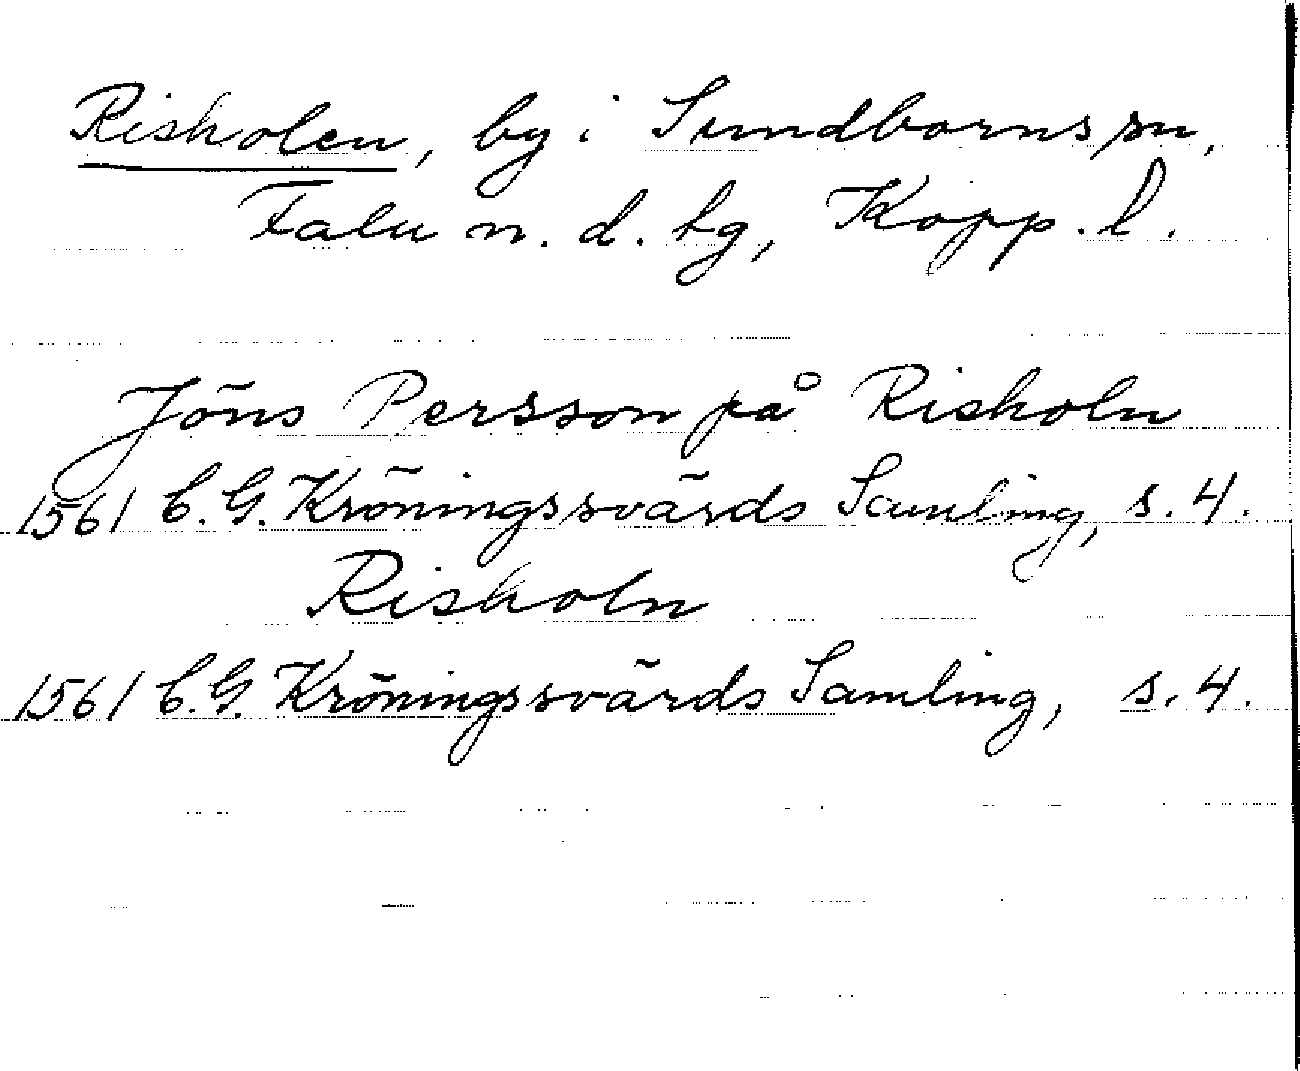 Risholen, by i Sundborns sn,
Falu n. d. hg, Kopp. l.
Jöns Persson på Risholn
1561 C. G. Kröningssvärds Samling, s. 4.
Risholn
1561 C. G. Kröningssvärds Samling, s. 4.